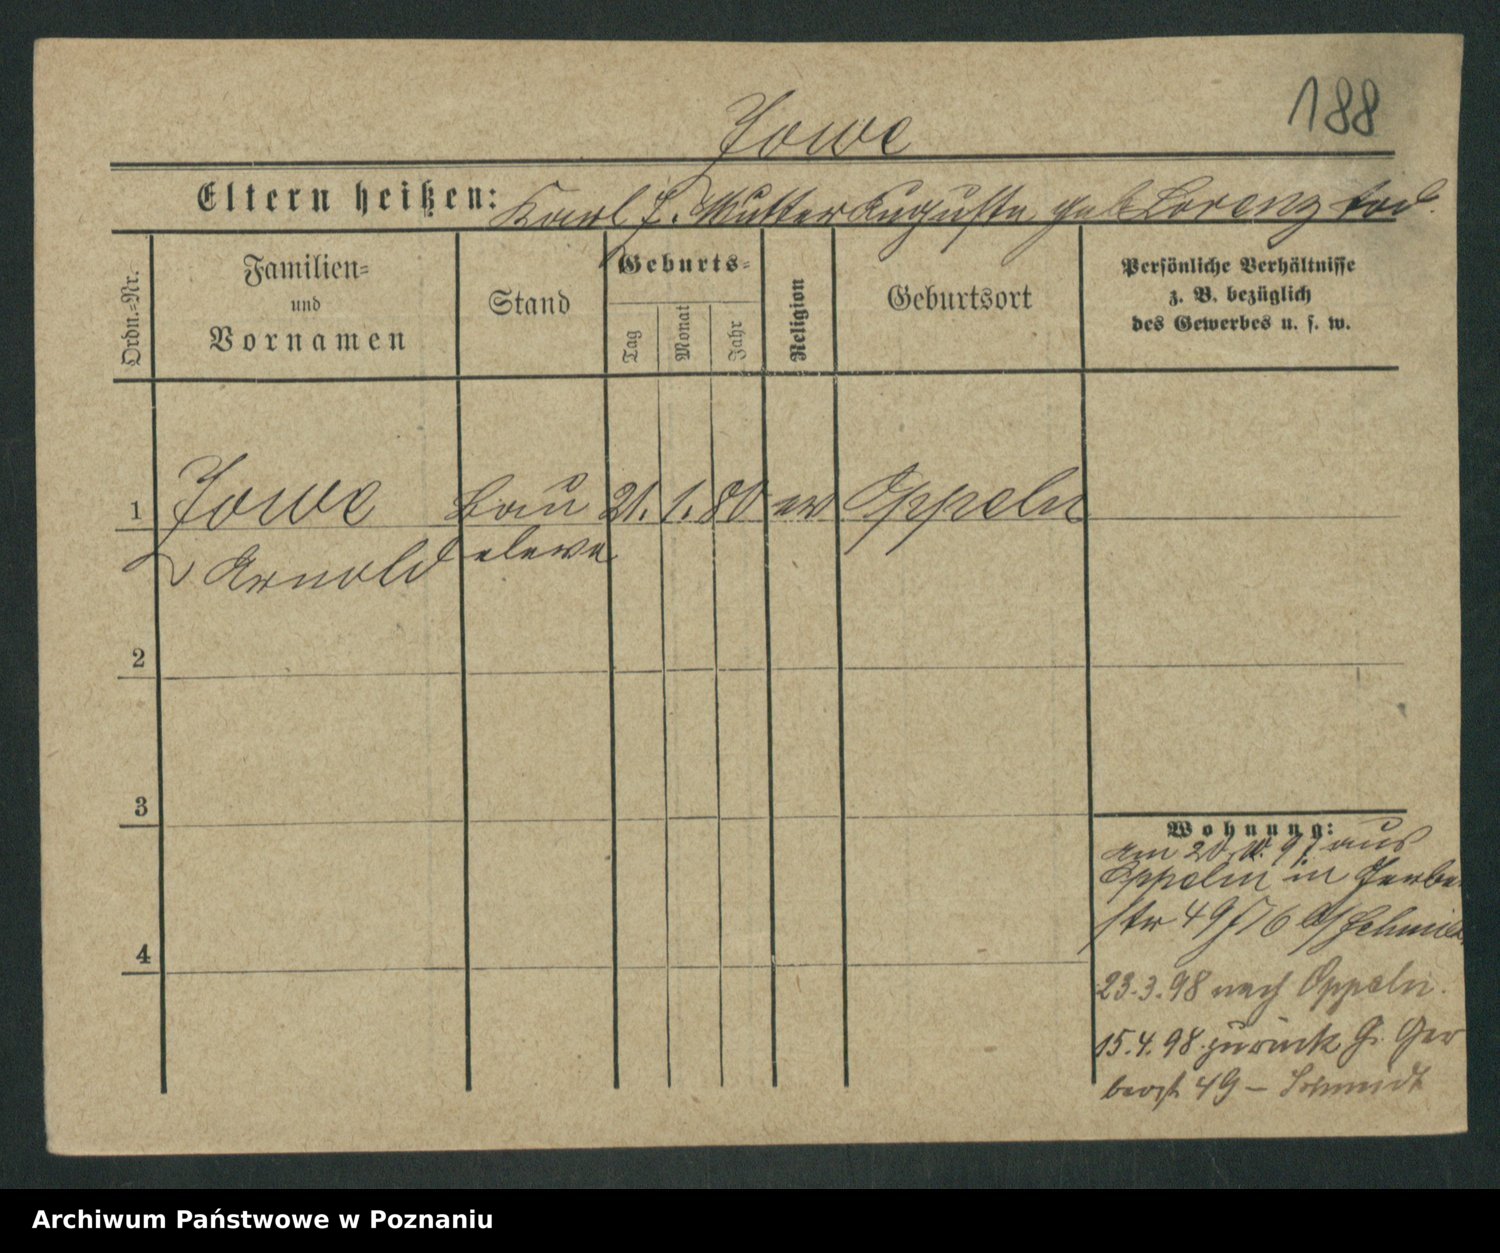 188
Jowe
Eltern heißen: Karl J. Mutter Auguste geb Lorenz tod.
Ordn.=Nr.
Familien=
und
Vornamen
Stand
Geburts=
Tag
Monat
Jahr
Religion
Geburtsort
Persönliche Verhältnisse
z. B. bezüglich
des Gewerbes u. s. w.
1 Jowe Bau 21. 1. 80 ev Oppeln
Arnold eleve
2
3
4
Wohnung:
am 20. 97 aus
Oppeln in Gerber
str 49 b/ Schmidt
23.3.98 nach Oppeln.
15.4.98 zurück Gr. Ger
berst 49 – Schmidt
Archiwum Państwowe w Poznaniu